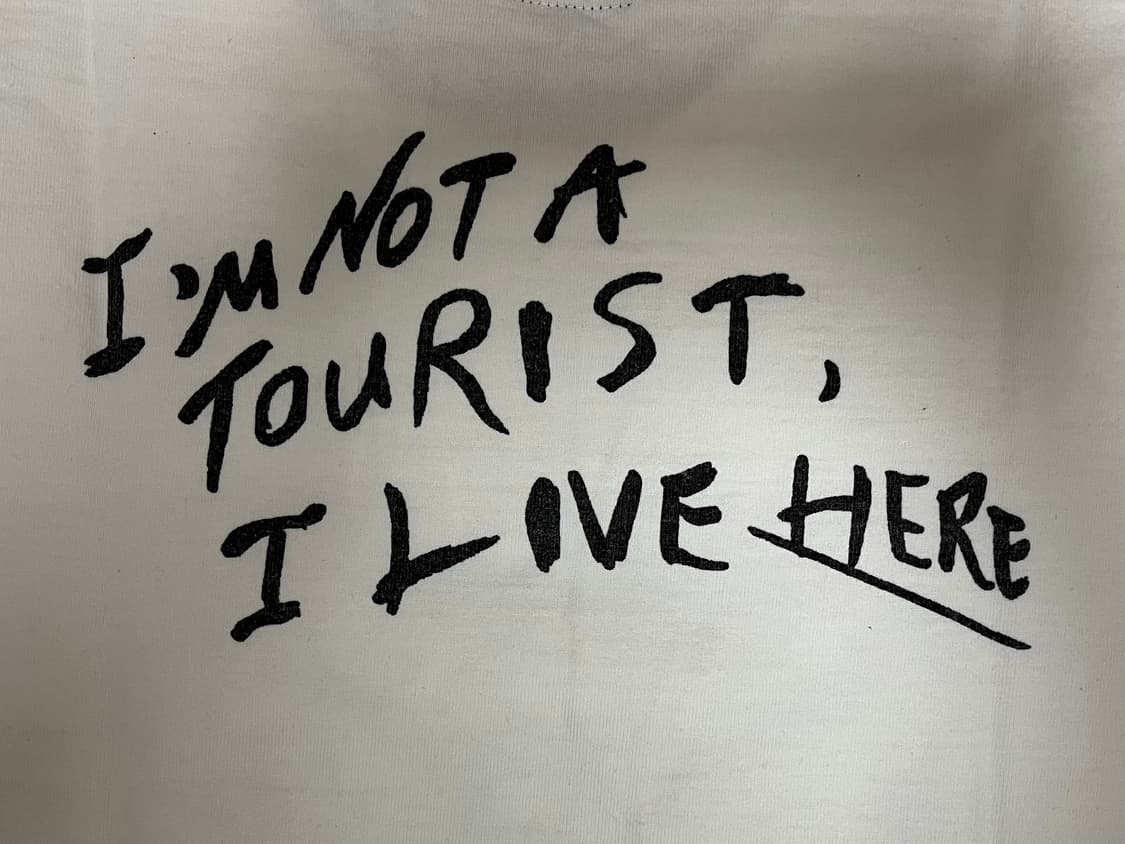 I'M NOT A
TOURIST,
I LIVE HERE